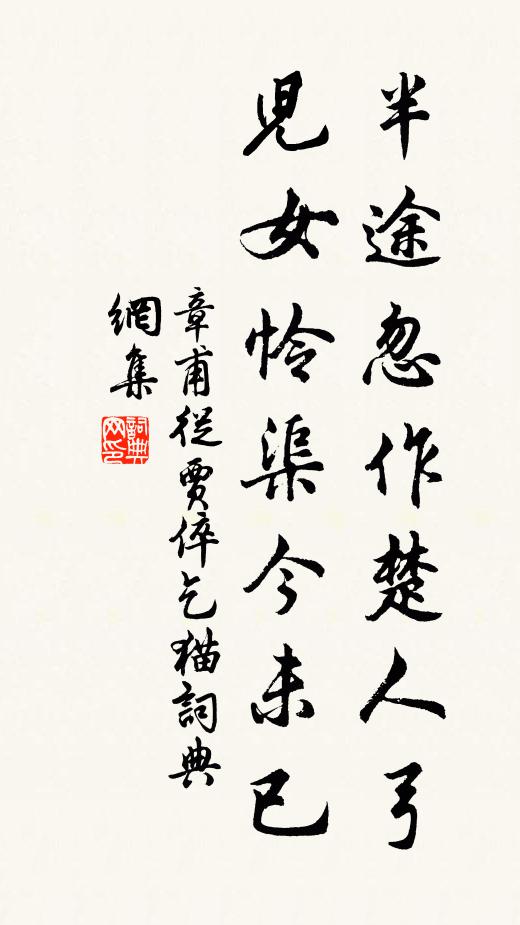 半途忽作楚人弓
兒女怜渠今未已
章甫從賈倅乞猫詞典
網集
詞典
网印